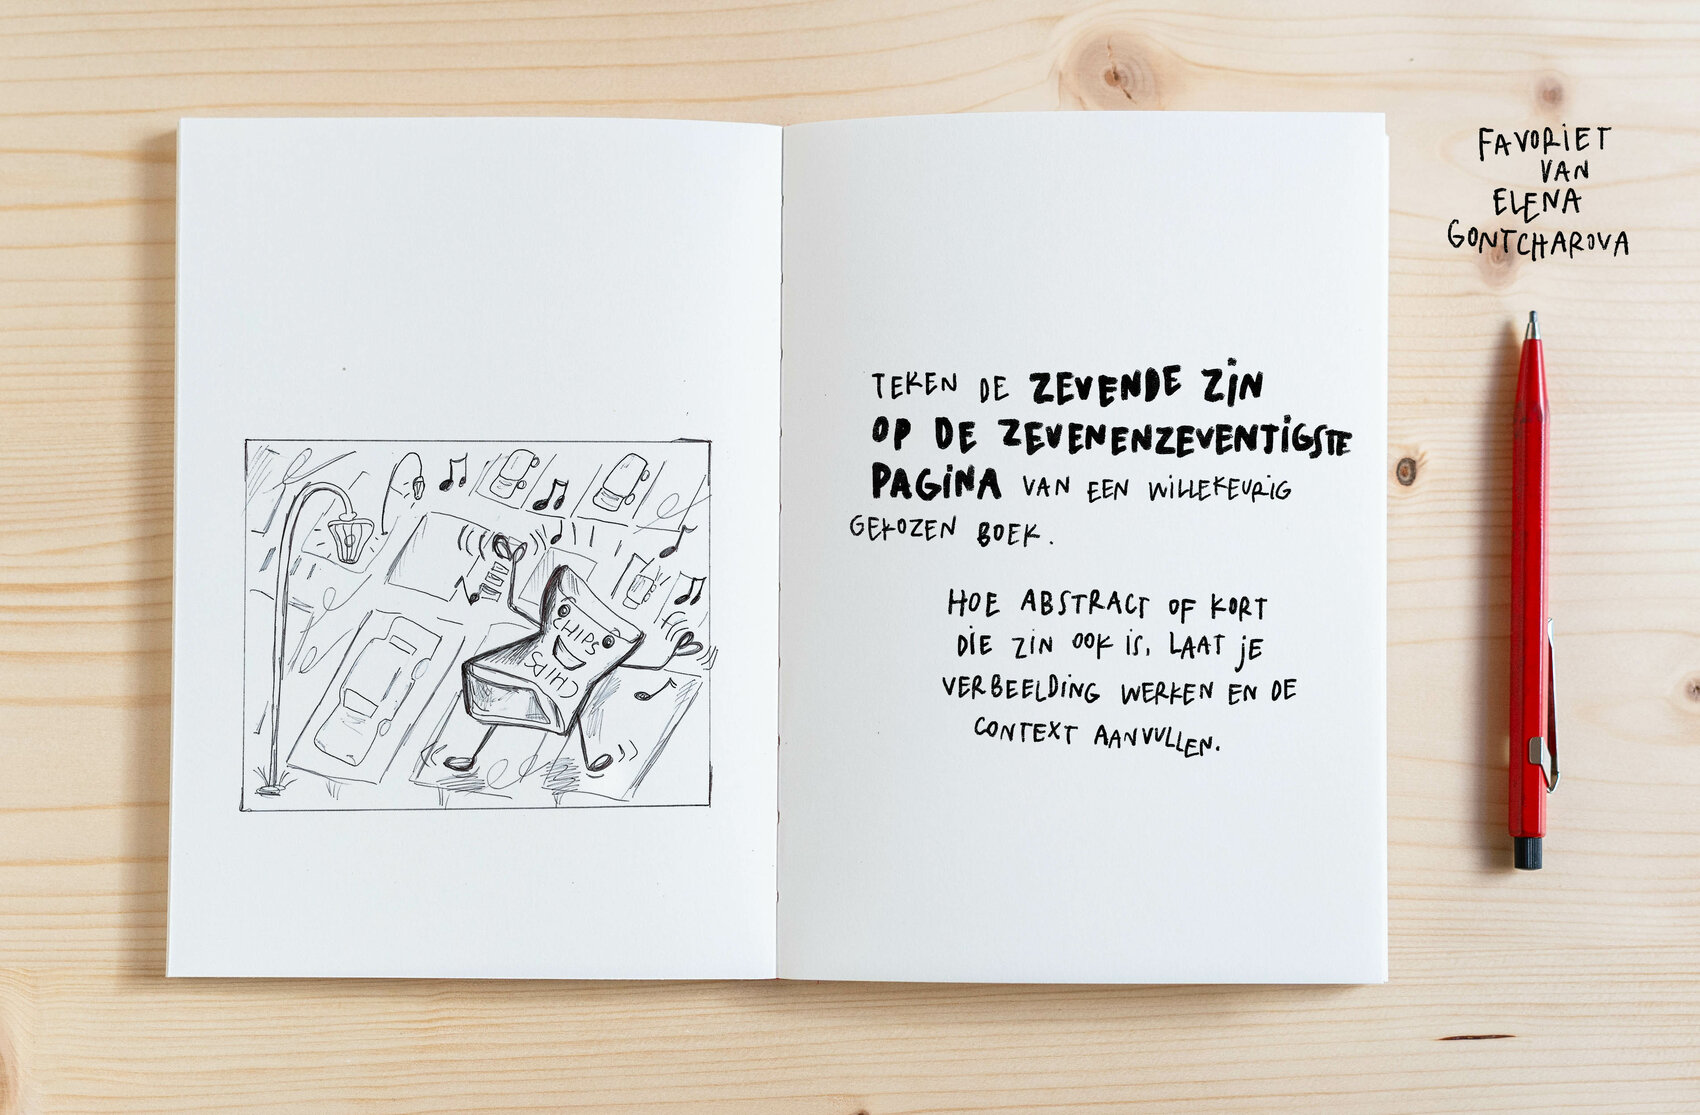 CHIPS
CHIPS
TEKEN DE ZEVENDE ZIN
OP DE ZEVENENZEVENTIGSTE
PAGINA VAN EEN WILLEKEURIG
GEKOZEN BOEK.
HOE ABSTRACT OF KORT
DIE ZIN OOK IS, LAAT JE
VERBEELDING WERKEN EN DE
CONTEXT AANVULLEN.
FAVORIET
VAN
ELENA
GONTCHAROVA